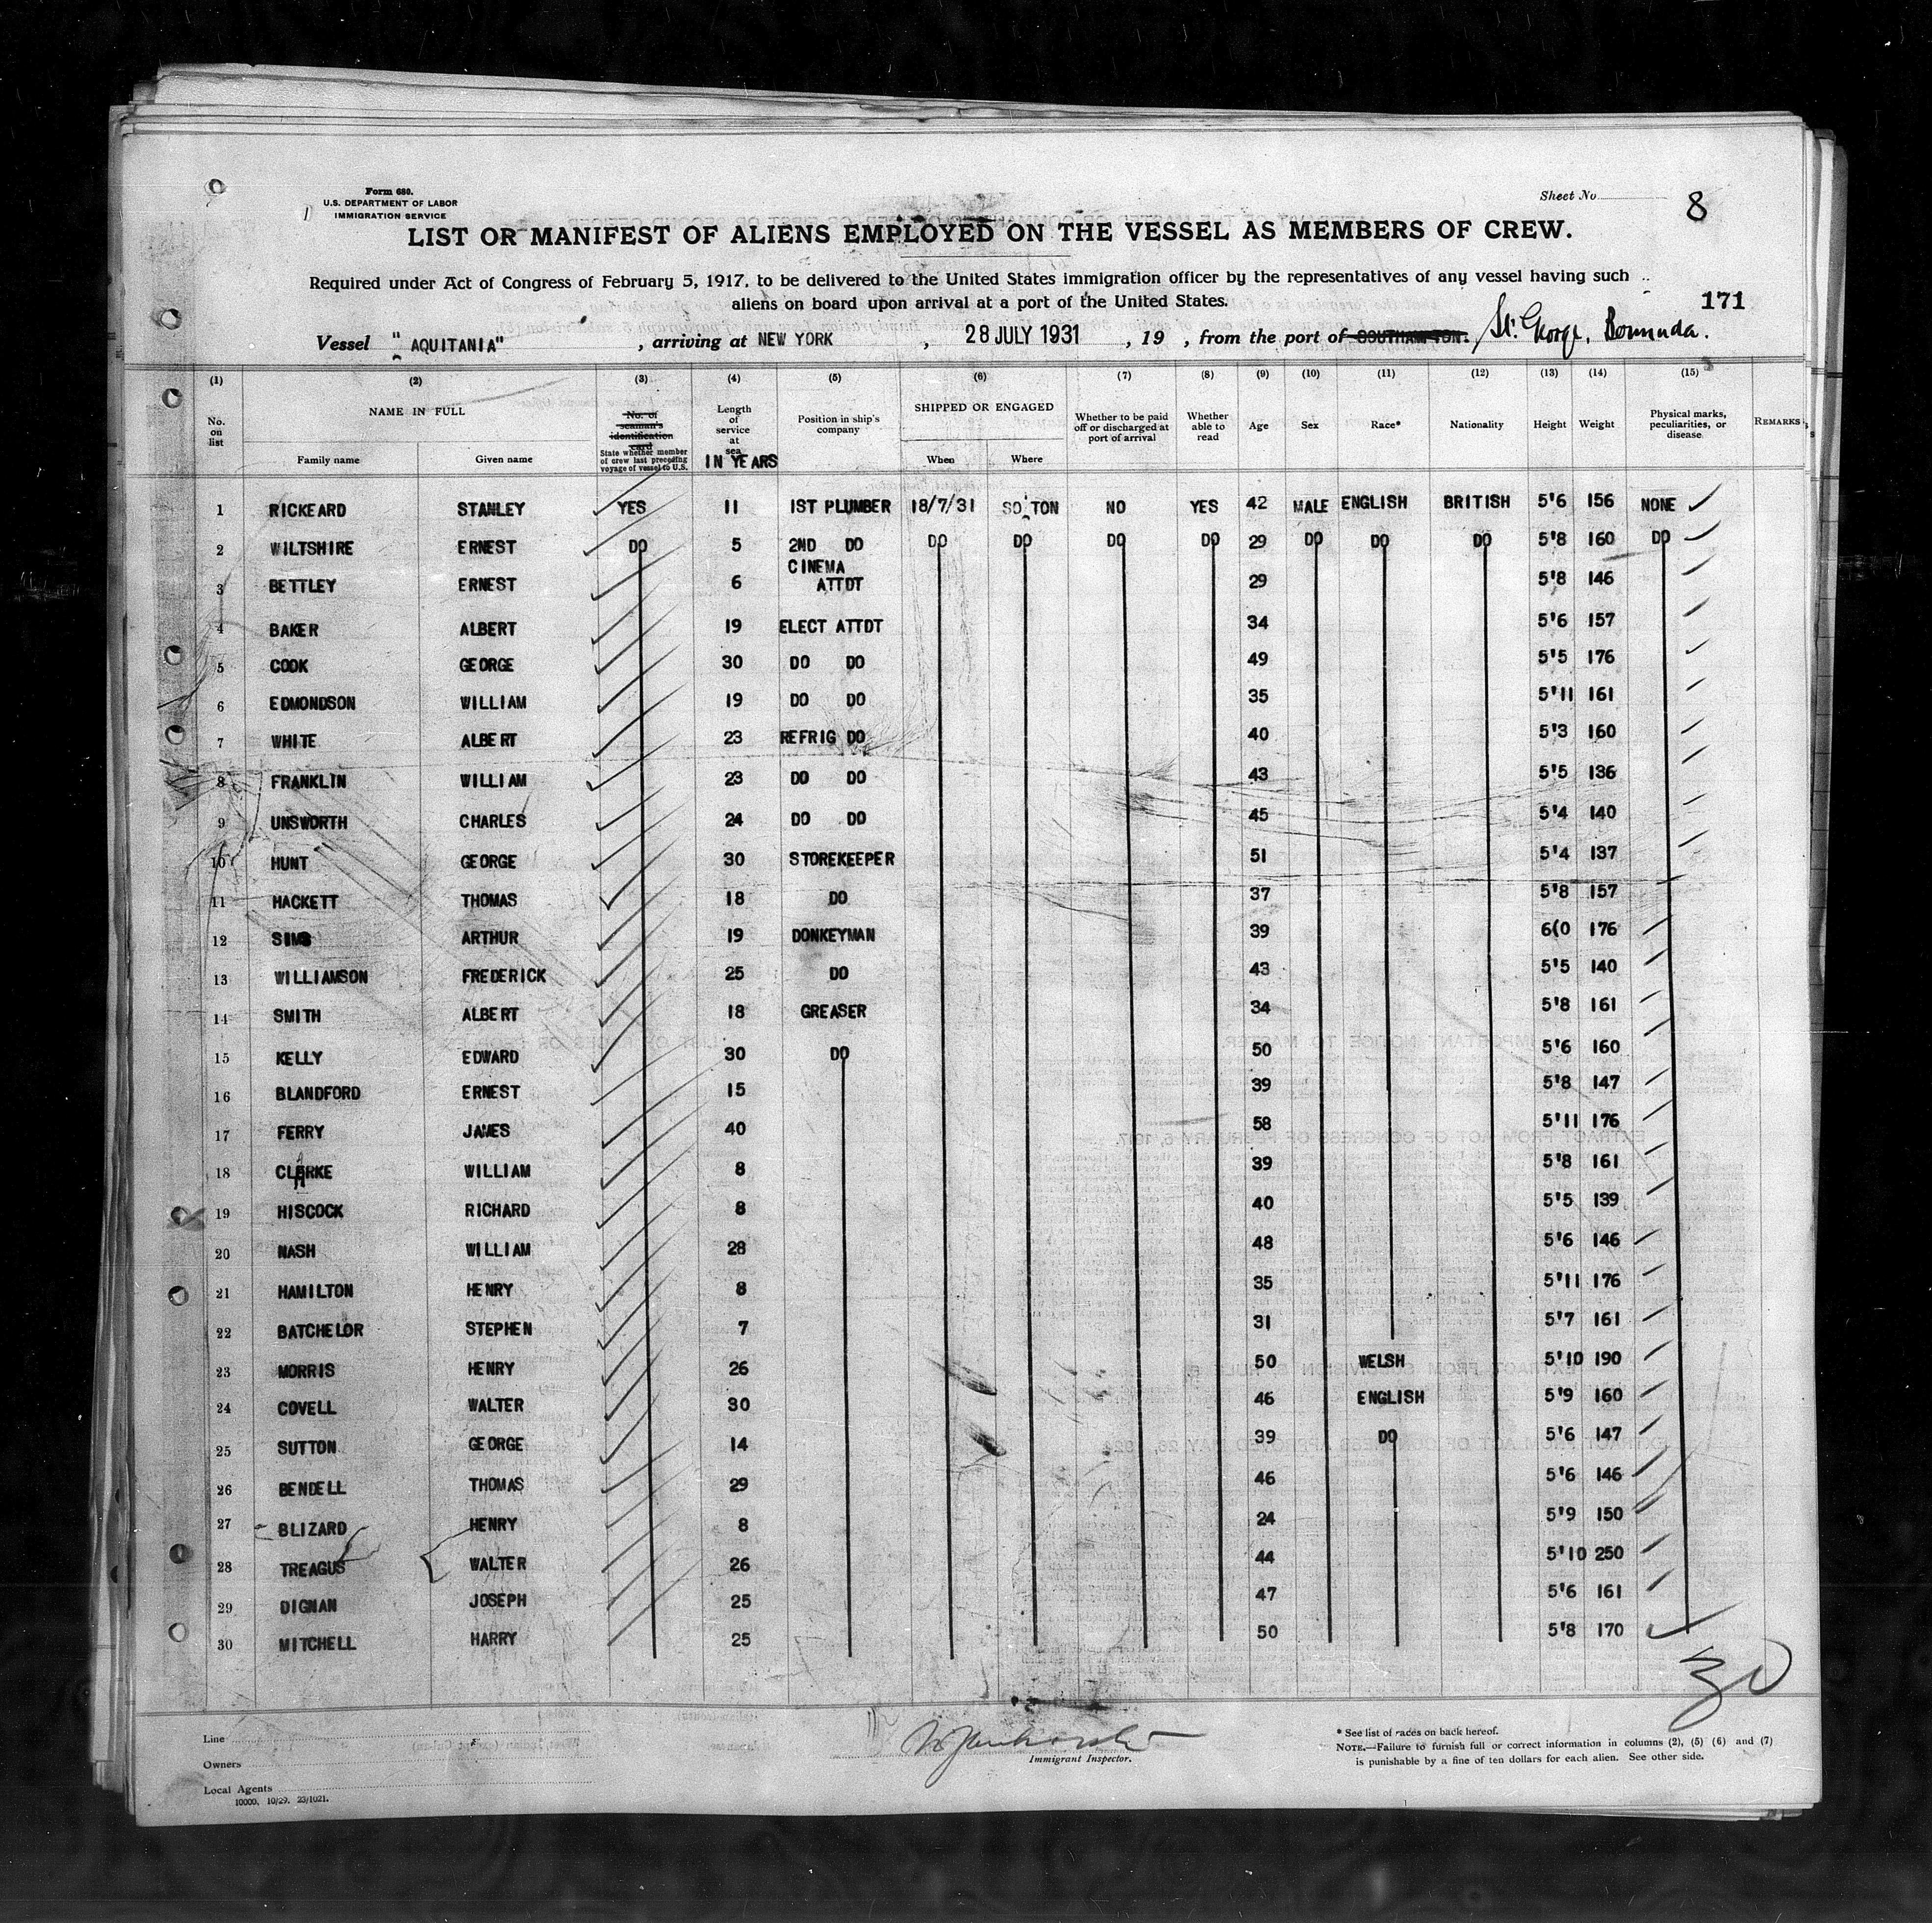 Form 680.
U.S. DEPARTMENT OF LABOR
IMMIGRATION SERVICE
Sheet No. 8
LIST OR MANIFEST OF ALIENS EMPLOYED ON THE VESSEL AS MEMBERS OF CREW.
Required under Act of Congress of February 5, 1917, to be delivered to the United States immigration officer by the representatives of any vessel having such
aliens on board upon arrival at a port of the United States.
171
Vessel "AQUITANIA", arriving at NEW YORK, 28 JULY 1931, 19 , from the port of SOUTHAMPTON. St. George, Bermuda.
(1) (2) (3) (4) (5) (6) (7) (8) (9) (10) (11) (12) (13) (14) (15)
No. on list NAME IN FULL Family name Given name No. of seaman's identification card State whether member of crew last preceding voyage of vessel to U.S. Length of service at sea IN YEARS Position in ship's company SHIPPED OR ENGAGED When Where Whether to be paid off or discharged at port of arrival Whether able to read Age Sex Race* Nationality Height Weight Physical marks, peculiarities, or disease REMARKS
1 RICKEARD STANLEY YES 11 1ST PLUMBER 18/7/31 SO'TON NO YES 42 MALE ENGLISH BRITISH 5'6 156 NONE
2 WILTSHIRE ERNEST DO 5 2ND DO DO DO DO DO 29 DO DO DO 5'8 160 DO
3 BETTLEY ERNEST 6 CINEMA ATTDT 29 5'8 146
4 BAKER ALBERT 19 ELECT ATTDT 34 5'6 157
5 COOK GEORGE 30 DO DO 49 5'5 176
6 EDMONDSON WILLIAM 19 DO DO 35 5'11 161
7 WHITE ALBERT 23 REFRIG DO 40 5'3 160
8 FRANKLIN WILLIAM 23 DO DO 43 5'5 136
9 UNSWORTH CHARLES 24 DO DO 45 5'4 140
10 HUNT GEORGE 30 STOREKEEPER 51 5'4 137
11 HACKETT THOMAS 18 DO 37 5'8 157
12 SIMS ARTHUR 19 DONKEYMAN 39 6(0 176
13 WILLIAMSON FREDERICK 25 DO 43 5'5 140
14 SMITH ALBERT 18 GREASER 34 5'8 161
15 KELLY EDWARD 30 DO 50 5'6 160
16 BLANDFORD ERNEST 15 39 5'8 147
17 FERRY JAMES 40 58 5'11 176
18 CLARKE WILLIAM 8 39 5'8 161
19 HISCOCK RICHARD 8 40 5'5 139
20 NASH WILLIAM 28 48 5'6 146
21 HAMILTON HENRY 8 35 5'11 176
22 BATCHELOR STEPHEN 7 31 5'7 161
23 MORRIS HENRY 26 50 WELSH 5'10 190
24 COVELL WALTER 30 46 ENGLISH 5'9 160
25 SUTTON GEORGE 14 39 DO 5'6 147
26 BENDELL THOMAS 29 46 5'6 146
27 BLIZARD HENRY 8 24 5'9 150
28 TREAGUS WALTER 26 44 5'10 250
29 DIGNAN JOSEPH 25 47 5'6 161
30 MITCHELL HARRY 25 50 5'8 170
30
Line
Owners
Local Agents
10000. 10/29. 23/1021.
Immigrant Inspector.
* See list of races on back hereof.
NOTE.—Failure to furnish full or correct information in columns (2), (5) (6) and (7)
is punishable by a fine of ten dollars for each alien. See other side.